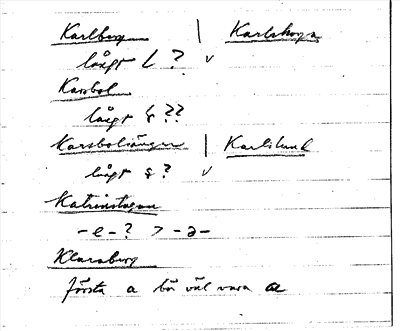 Karlborg | Karlskoga
långt l ? v
Karsbol
långt s ??
Karsbolsängen | Karlslund
långt s ? v
Katrinetorp
-e-? > -ə-
Klaraborg
första a bör väl vara a